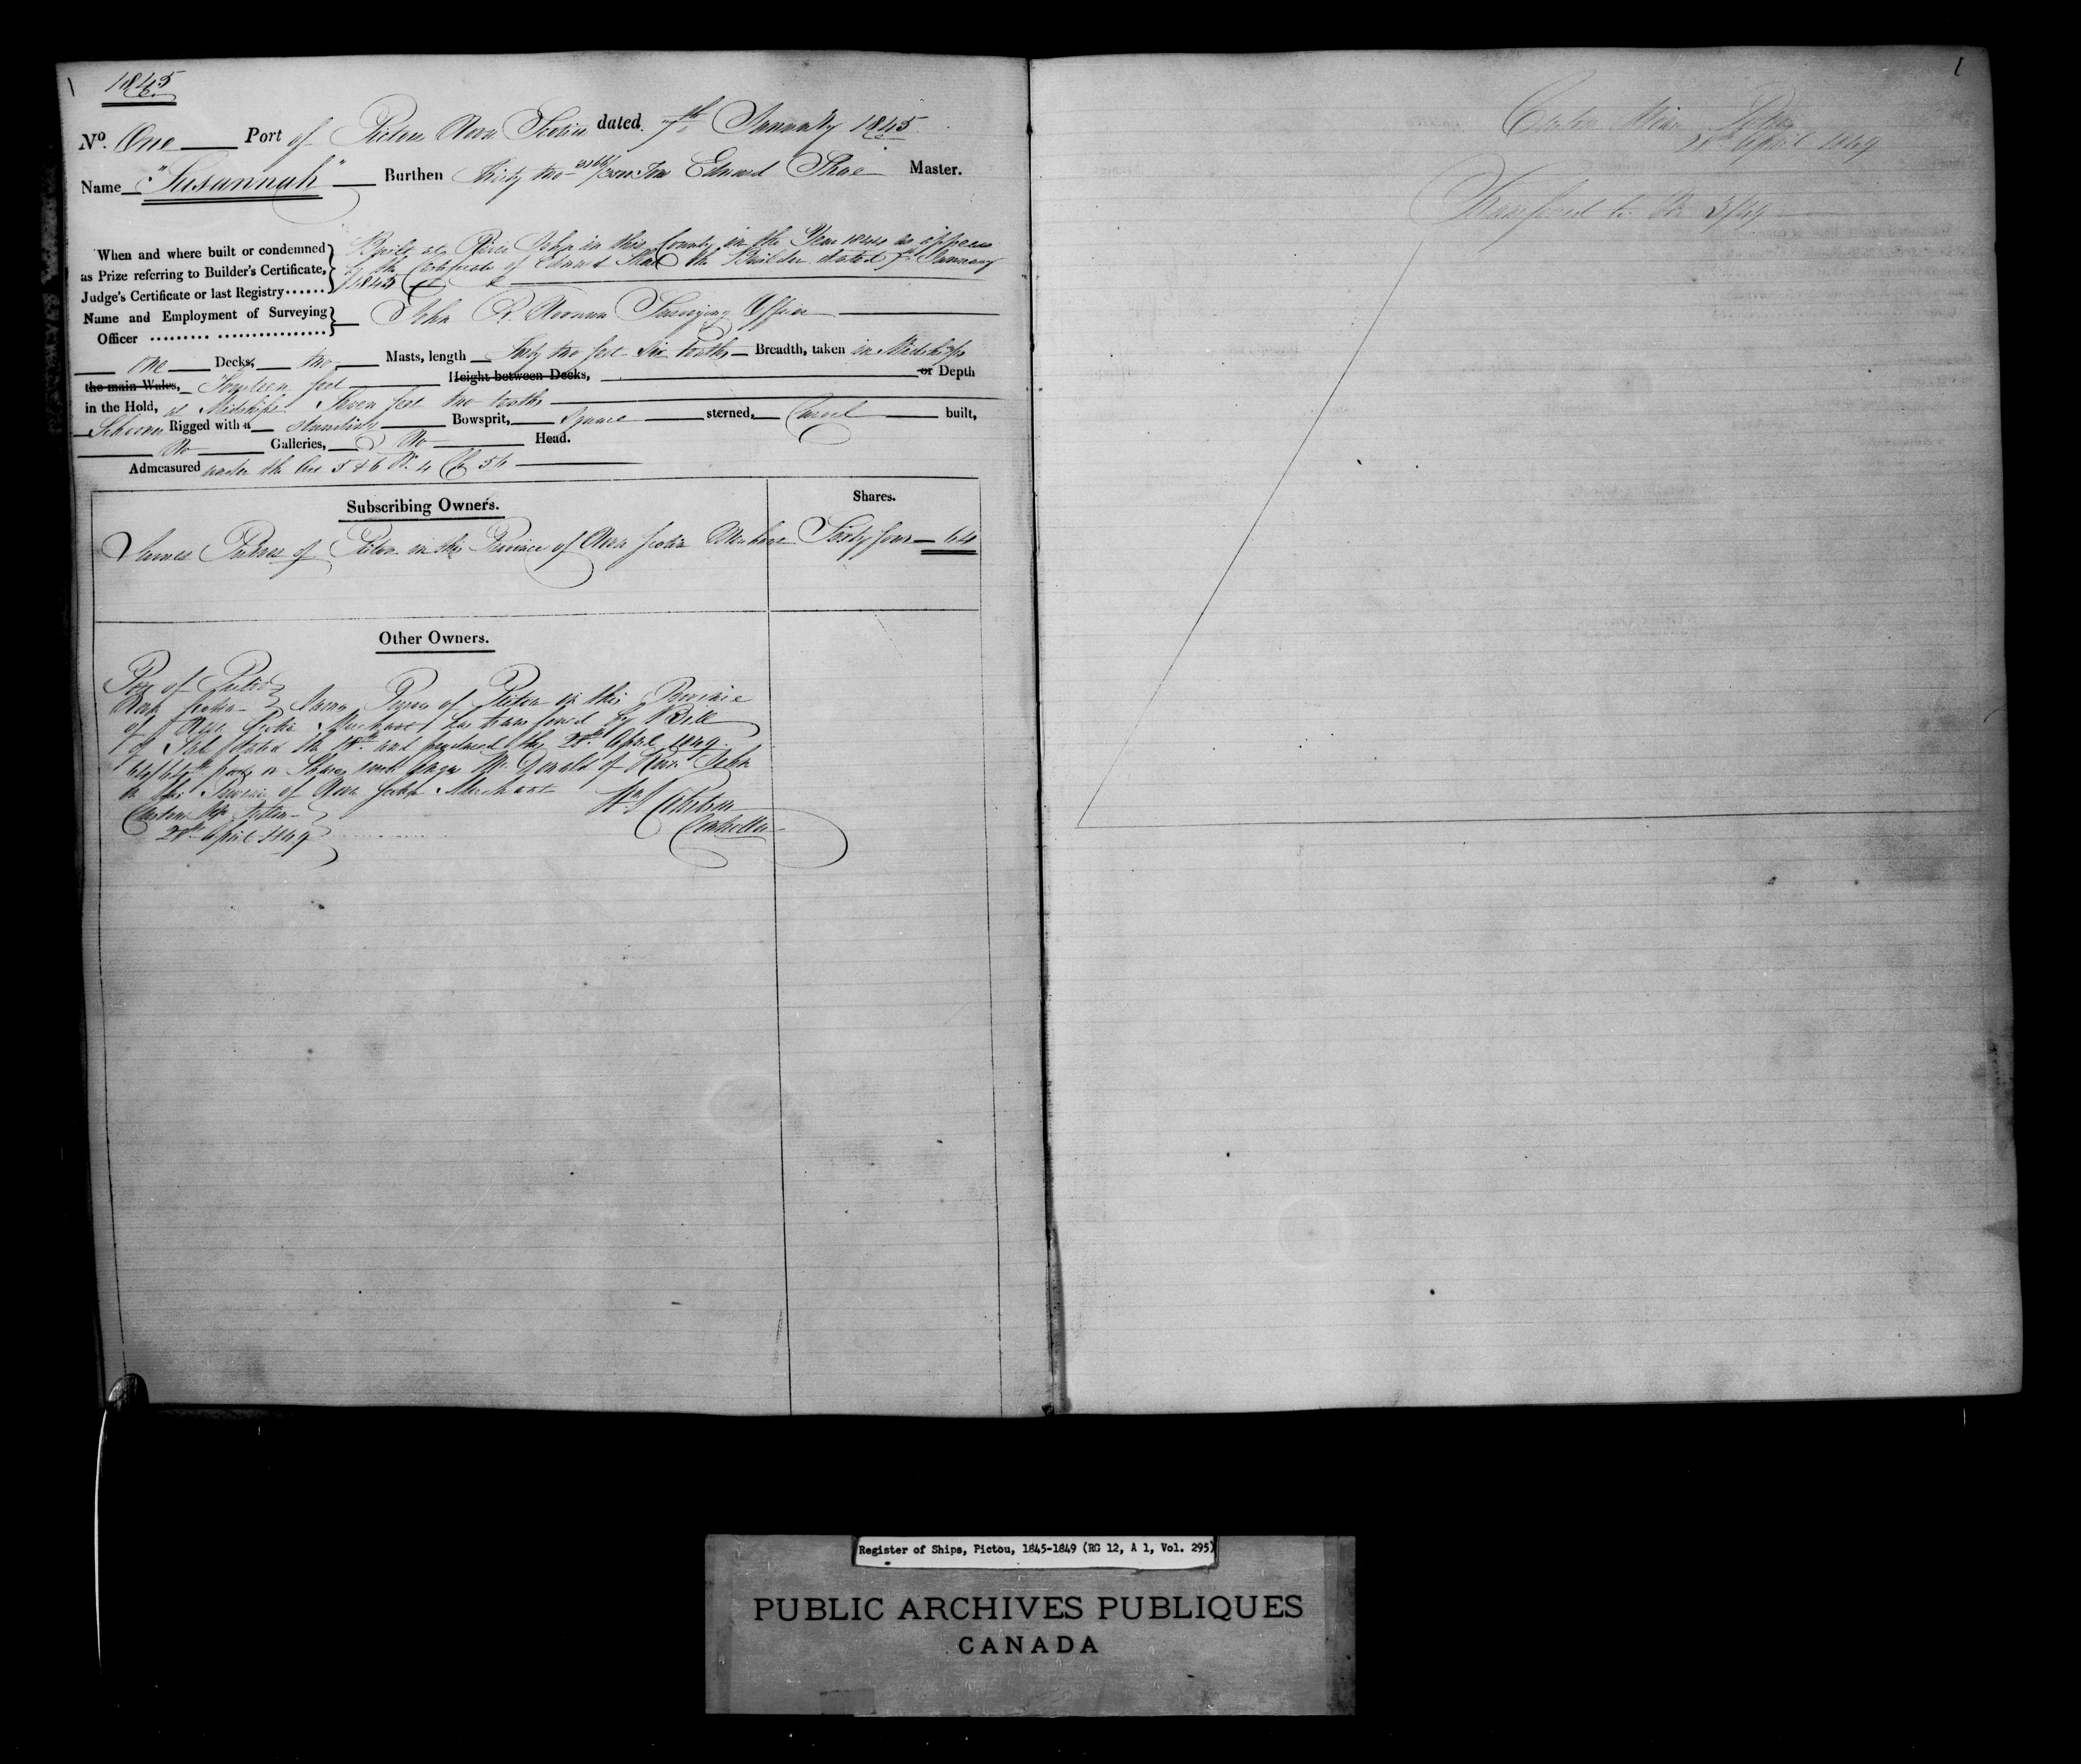 1845
No. One Port of Pictou Nova Scotia dated 7th January 1845
Name "Susannah" Burthen Thirty two /3500 Tons Edward Shae Master.
When and where built or condemned as Prize referring to Builder's Certificate, Judge's Certificate or last Registry......
Built at River John in this County in the Year 1844 as appears
by the Certificate of Edward the Builder dated 7th January
1845
Name and Employment of Surveying Officer ......... ................
John R. Noonan Surveying Officer
One Decks, two Masts, length Forty two feet Six tenths Breadth, taken in Midships
the main Wales, Fourteen feet Height between Decks, or Depth
in the Hold, at Midships Seven feet two tenths
Schooner Rigged with a standing Bowsprit, Square sterned, Carvel built,
No Galleries, No Head.
Admeasured under the Act 5 & 6 W. 4 Ch 56
Subscribing Owners. Shares.
James of Pictou in this Province of Nova Scotia Merchant Sixty four 64
Other Owners.
Port of Pictou
Nova Scotia James of Pictou in this Province
of Nova Scotia Merchant has transferred by Bill
of Sale dated the 18th and produced the 28th April 1849
64/64th parts or Shares unto McDonald of River John
in this Province of Nova Scotia Merchant
Custom Pictou
28th April 1849
Controller
1
Custom
28th April 1849
Transferred to No 3/49
Register of Ships, Pictou, 1845-1849 (RG 12, A 1, Vol. 295)
PUBLIC ARCHIVES PUBLIQUES
CANADA